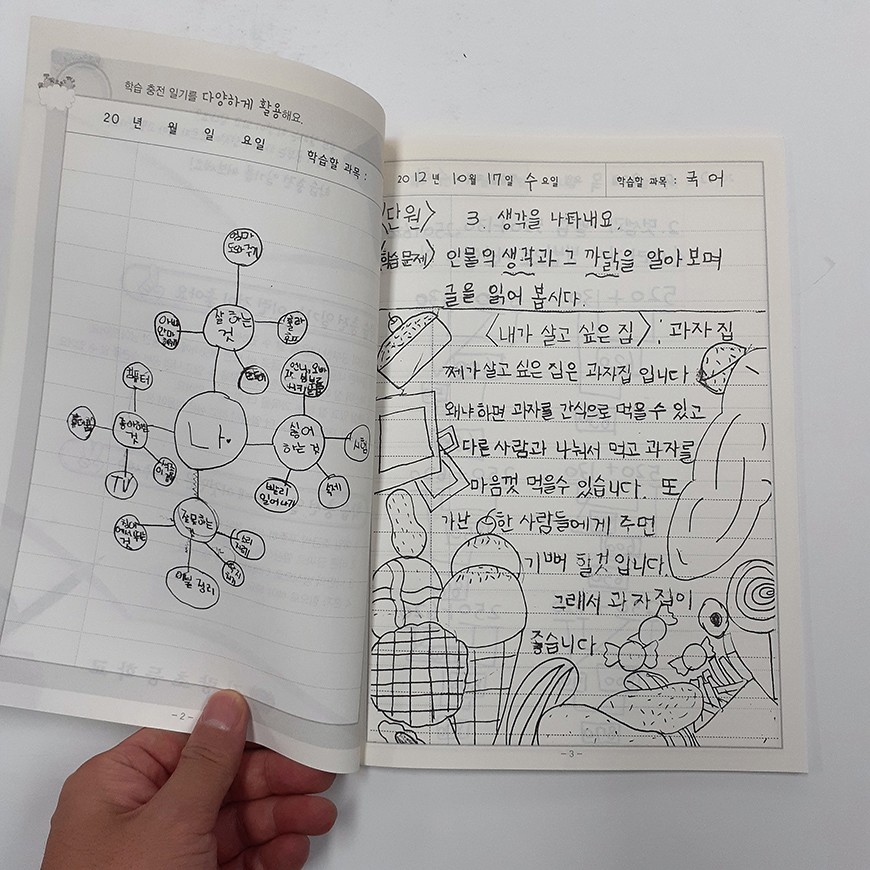 학습 충전 일기를 다양하게 활용해요.
20 년 월 일 요일
학습할 과목 :
엄마
도와주기
잘 하는
것
훌라
후프
컴퓨터
좋아하는
것
TV
나.
싫어
하는 것
시험
숙제
빨리
일어나기
잘 못하는
것
이불 정리
- 2 -
2012년 10월 17일 수요일
학습할 과목 : 국어
단원〉 3. 생각을 나타내요.
학습 문제〉 인물의 생각과 그 까닭을 알아보며
글을 읽어 봅시다.
〈내가 살고 싶은 집〉: 과자 집
쩨가 살고 싶은 집은 과자집 입니다
왜냐하면 과자를 간식으로 먹을 수 있고
다른 사람과 나눠서 먹고 과자를
마음껏 먹을 수 있습니다. 또
가난한 사람들에게 주면
기뻐 할것 입니다.
그래서 과자 집이
좋습니다.
- 3 -